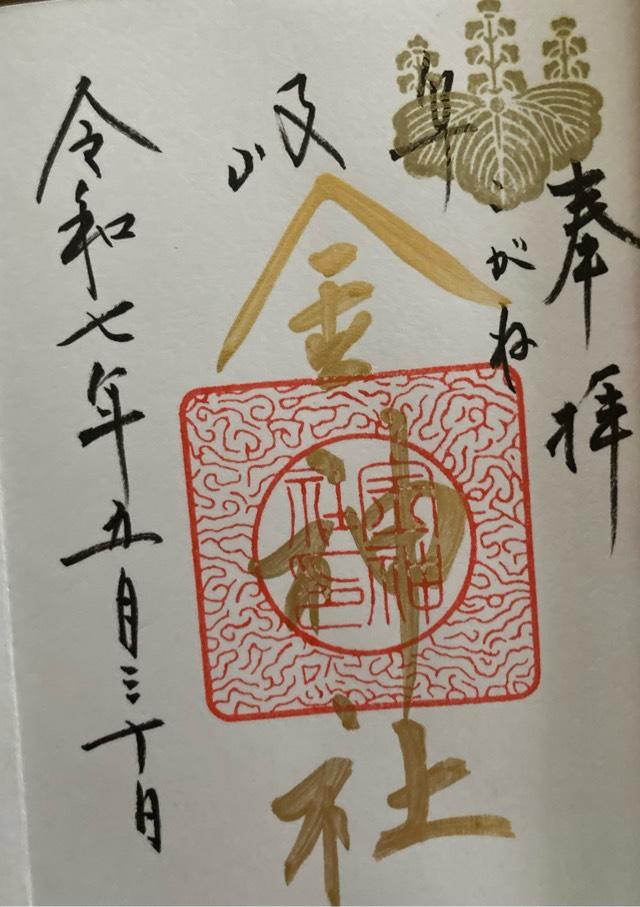 奉拝
岐阜
こがね
金神社
金神社印
令和七年五月三十日